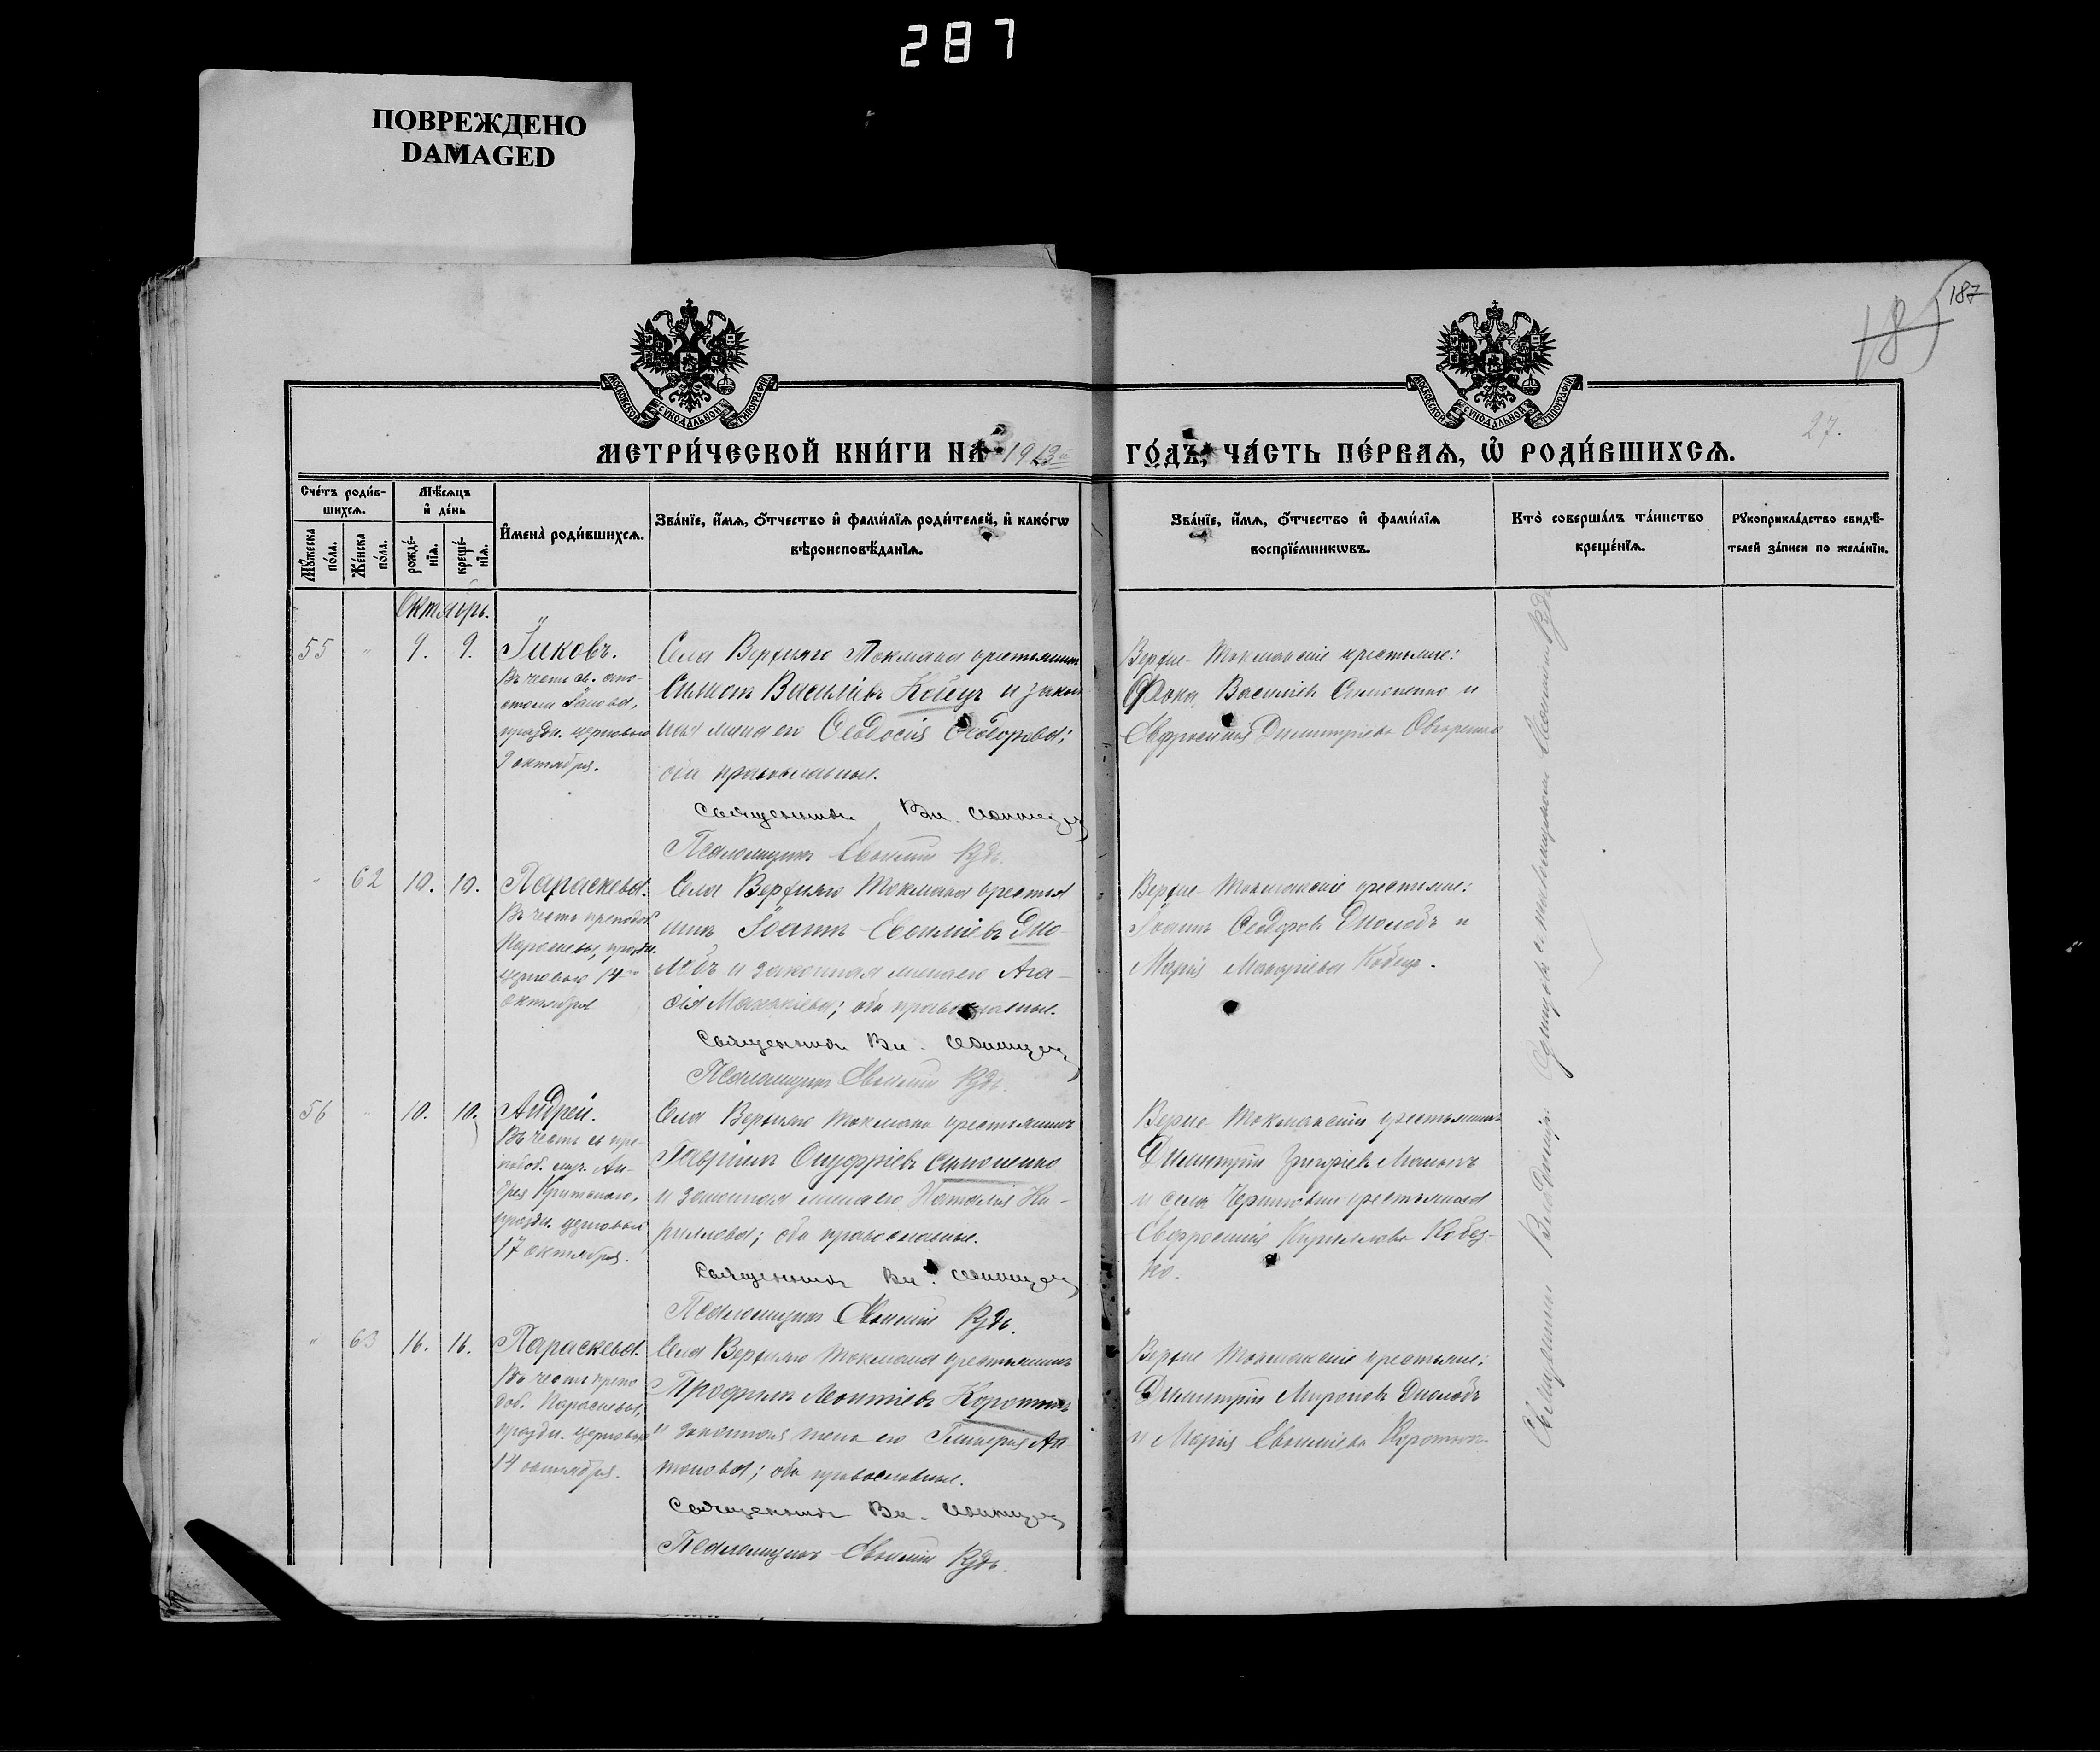 287
ПОВРЕЖДЕНО
DAMAGED
187
185
27.
МОСКОВСКОЙ СѴНОДАЛЬНОЙ ТИПОГРАФІИ
МОСКОВСКОЙ СѴНОДАЛЬНОЙ ТИПОГРАФІИ
МЕТРИ́ЧЕСКОЙ КНИ́ГИ НА 1913й ГО́ДЪ, ЧА́СТЬ ПЕ́РВАѦ, Ѡ҆ РОДИ́ВШИХСѦ.
Сче́тъ роди́в-
шихсѧ.
Мꙋ́жеска по́ла.
Же́нска по́ла.
Мѣ́сѧцъ
и҆ де́нь
рожде́-нїѧ.
креще́-нїѧ.
И҆мена̀ роди́вшихсѧ.
Зва́нїе, и҆́мѧ, ѻ҆́тчество и҆ фами́лїѧ роди́телей, и҆ како́гѡ
вѣроисповѣ́данїѧ.
Зва́нїе, и҆́мѧ, ѻ҆́тчество и҆ фами́лїѧ
воспрїе́мникѡвъ.
Кто̀ соверша́лъ та́инство
креще́нїѧ.
Рꙋкоприкла́дство свидѣ́-
телей за́писи по жела́нїю.
Октябрь.
55 " 9. 9. Іаковъ.
Въ честь св. апо-
стола Іакова,
праздн. церковью
9 октября.
Села Верхняго Токмака крестьянинъ
Василіевъ и закон
ная жена его Ѳеодосія Ѳеодорова;
оба православные.
Священникъ Вл.
Псаломщикъ Евѳимій
Верхне-Токмакскіе крестьяне:
Фока Василіевъ Симоненко и
Евфросинія Димитріева
" 62 10. 10. Параскева.
Въ честь преподоб.
Параскевы, праздн.
церковью 14го
октября
Села Верхняго Токмака крестья
нинъ Іоаннъ Евѳиміевъ Дио-
лодъ и законная жена его Ага-
ѳія; оба православные.
Священникъ Вл.
Псаломщикъ Евѳимій
Верхне-Токмакскіе крестьяне:
Іоаннъ Ѳеодоровъ Диолодъ и
Марія Макаріева Кобецъ.
56 " 10. 10. Андрей.
Въ честь св. пре-
подоб. муч. Ан-
дрея Критскаго,
праздн. церковью
17 октября.
Села Верхняго Токмака крестьянинъ
Гавріилъ Онуфріевъ Симоненко
и законная жена его Наталія Ки-
риллова; оба православные.
Священникъ Вл.
Псаломщикъ Евѳимій
Верхне-Токмакскій крестьянинъ
Димитрій Григоріевъ
и села Черниговки крестьянка
Евфросинія Кириллова Кобез-
ко.
" 63 16. 16. Параскева.
Въ честь препо
доб. Параскевы,
праздн. церковью
14 октября.
Села Верхняго Токмака крестьянинъ
Трофимъ Леонтіевъ
и законная жена его Гликерія Ан
тонова; оба православные.
Священникъ Вл.
Псаломщикъ Евѳимій
Верхне-Токмакскіе крестьяне:
Димитрій Мироновъ Диолодъ
и Марія Евѳиміева
Священникъ Владиміръ съ псаломщикомъ